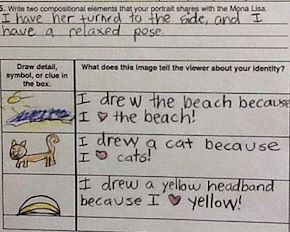 5. Write two compositional elements that your portrait shares with the Mona Lisa.
I have her turned to the side, and I
have a relaxed pose.
Draw detail,
symbol, or clue in
the box.
What does this image tell the viewer about your identity?
I drew the beach because
I ♥ the beach!
I drew a cat because
I ♥ cats!
I drew a yellow headband
because I ♥ yellow!